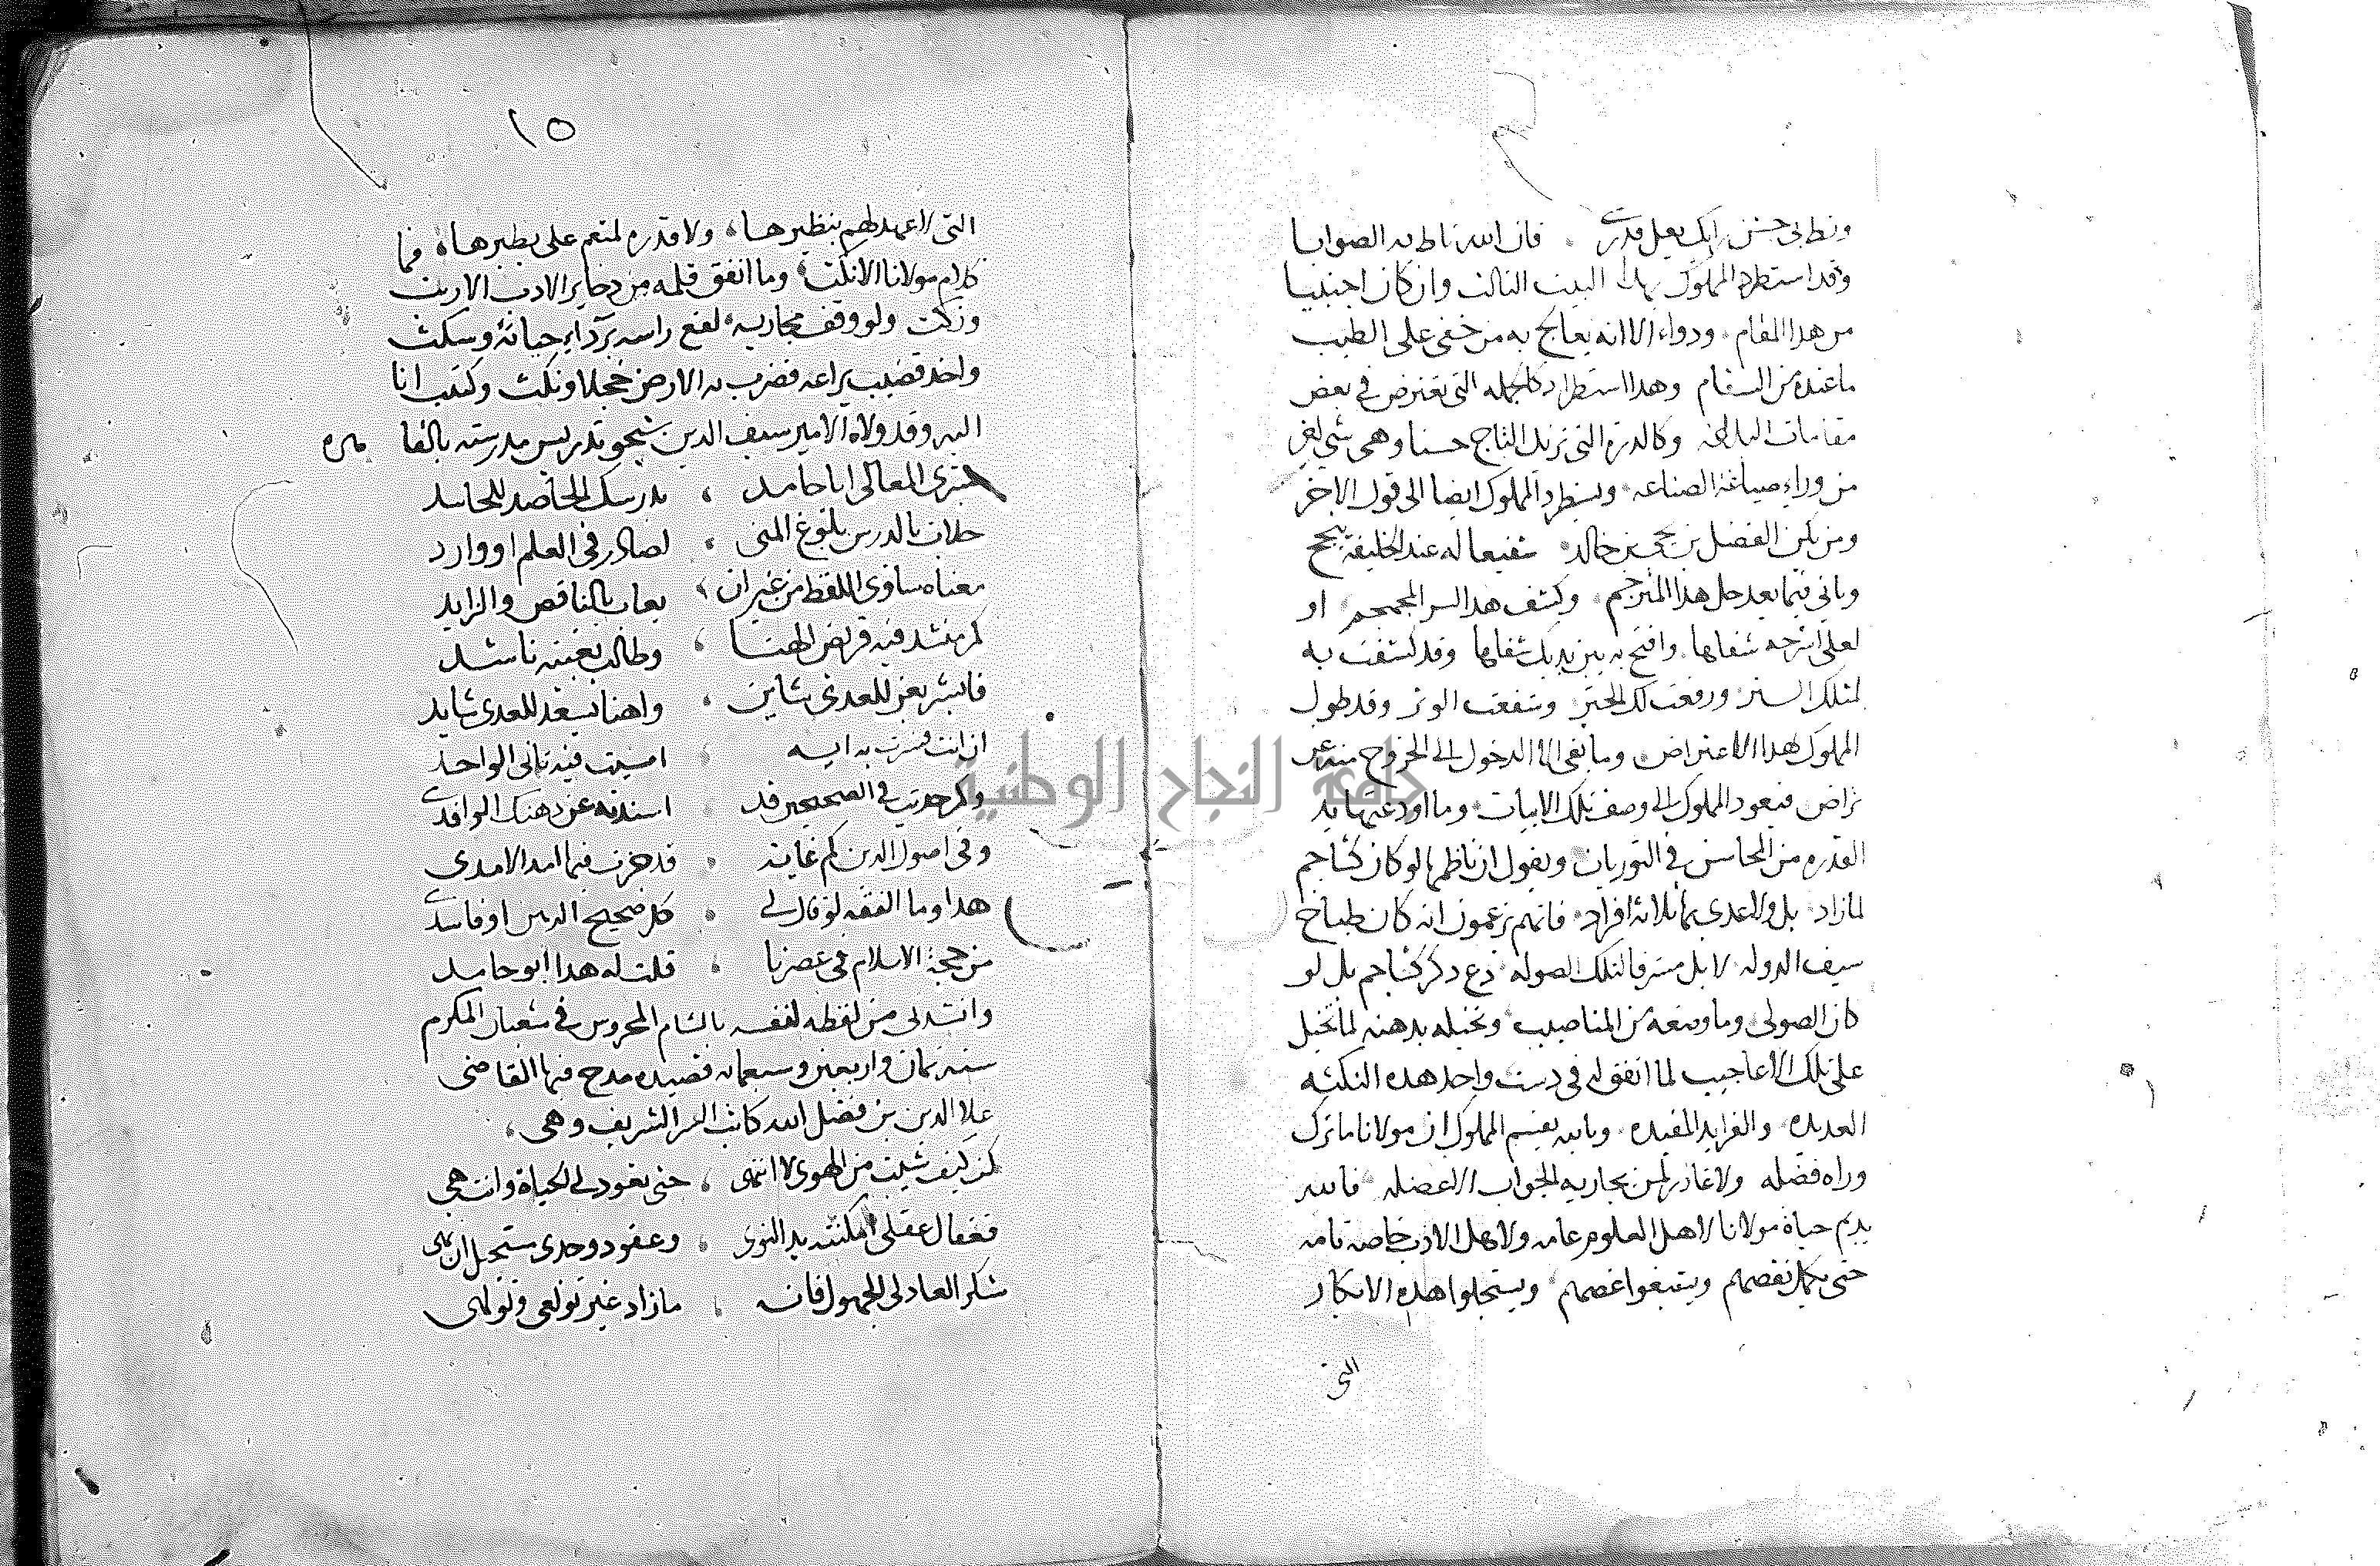 وظني حسن رايك يعل قدري . فان الله ناط به الصوابا
وقد استطرد المملوك بهذا البيت الثالث وان كان اجنبيا
من هذا المقام ودواء الا انه يعالج به من خفى على الطبيب
ما عنده من السقام وهذا استطراد كالجمله التي تعترض في بعض
مقامات البلاغه وكالدرة التي تزيد التاج حسنا وهي شي لغير
من وراء صياغة الصناعه ويستطرد المملوك ايضا الى قول الاخر
ومن يكن الفضل بن يحيى بن خالد شفيعا له عند الخليفة ينجح
وياتي فيما بعد حل هذا المترجم وكشف هذا السر المجمجم او
لعلي اشرحه شفاها وافتح به بين يديك شفاها وقد كشفت به
لمثلك الستر ورفعت لك الحجر وشفعت الوتر وقد طول
المملوك لهذا الاعتراض وما بقى الا الدخول الى الخروج منه عن
تراض فيعود المملوك الى وصف تلك الابيات وما اودعتها يد
القدره من المحاسن في التوريات ويقول ان ناظمها لو كان كشاجم
لما زاد بل ولا عدي بما ثلاثة افراد فانهم يزعمون انه كان طباخ
سيف الدوله لا بل مشرفا لتلك الصوله دع ذكر كشاجم بل لو
كان الصولي وما وضعه من المناصيب وتخيله بذهنه لما تخيل
على تلك الاعاجيب لما اتفق له في دست واحد هذه النكت
العديده والفرايد المفيده وبالله يقسم المملوك ان مولانا ما ترك
وراه فضله ولا غادر لمن يجاريه الجواب الا عضله فالله
يديم حياة مولانا لاهل العلوم عامه ولاهل الادب خاصه تامه
حتى يكمل نقصهم ويسيغوا غصصهم ويستجلوا هذه الابكار
التي
١٥
التي لا عهد لهم بنظيرها ولا قدره لمنعم على نظيرها فما
كلام مولانا الا نكت وما انفق قلمه من ذخاير الادب الا ربت
وزكت ولو وقف مجاريه لقنع راسه برداء حيائه وسكت
واخذ قضيب يراعه فضرب به الارض خجلا ونكت وكتبت انا
اليه وقد ولاه الامير سيف الدين شيخو تدريس مدرسته بالقاهره
بشرى المعالي ابا حامد ، بدرسك الحاصد للحاسد
جلاب بالدرس بلوغ المنى ، لصادر في العلم او وارد
معناه ساوى اللفظ من غير ان ، يعاب بالناقص والزايد
كم منشد فيه قريض الهنا ، وطالب بغيته ناشد
فابشر بعز للعدى شاين ، واهنا بسعد للعدى شايد
ان انت فسرت به ايه ، امسيت فيه ثاني الواحد
وكم حديث في الصحيحين قد ، اسندته عن ذهنك الواقد
وفي اصول الدين كم غاية ، قد حزت فيها امد الامدي
هذا وما الفقه لو قال لي ، كل صحيح الدين او فاسد
من حجة الاسلام في عصرنا ، قلت له هذا ابو حامد
وانشدني من لفظه لنفسه بالشام المحروس في شعبان المكرم
سنه ثمان واربعين وسبعمايه قصيده مدح فيها القاضي
علا الدين بن فضل الله كاتب السر الشريف وهي ،
كن كيف شيت من الهوى لا انتهى ، حتى تعود لي الحياة وانت هي
فعقال عقلي امكنته يد النوى ، وعقود وجدي مستحيل ان تهى
شكر العاذلي الجهول فانه ، ما زاد غير تولعي وتولهى
جامعة النجاح الوطنية